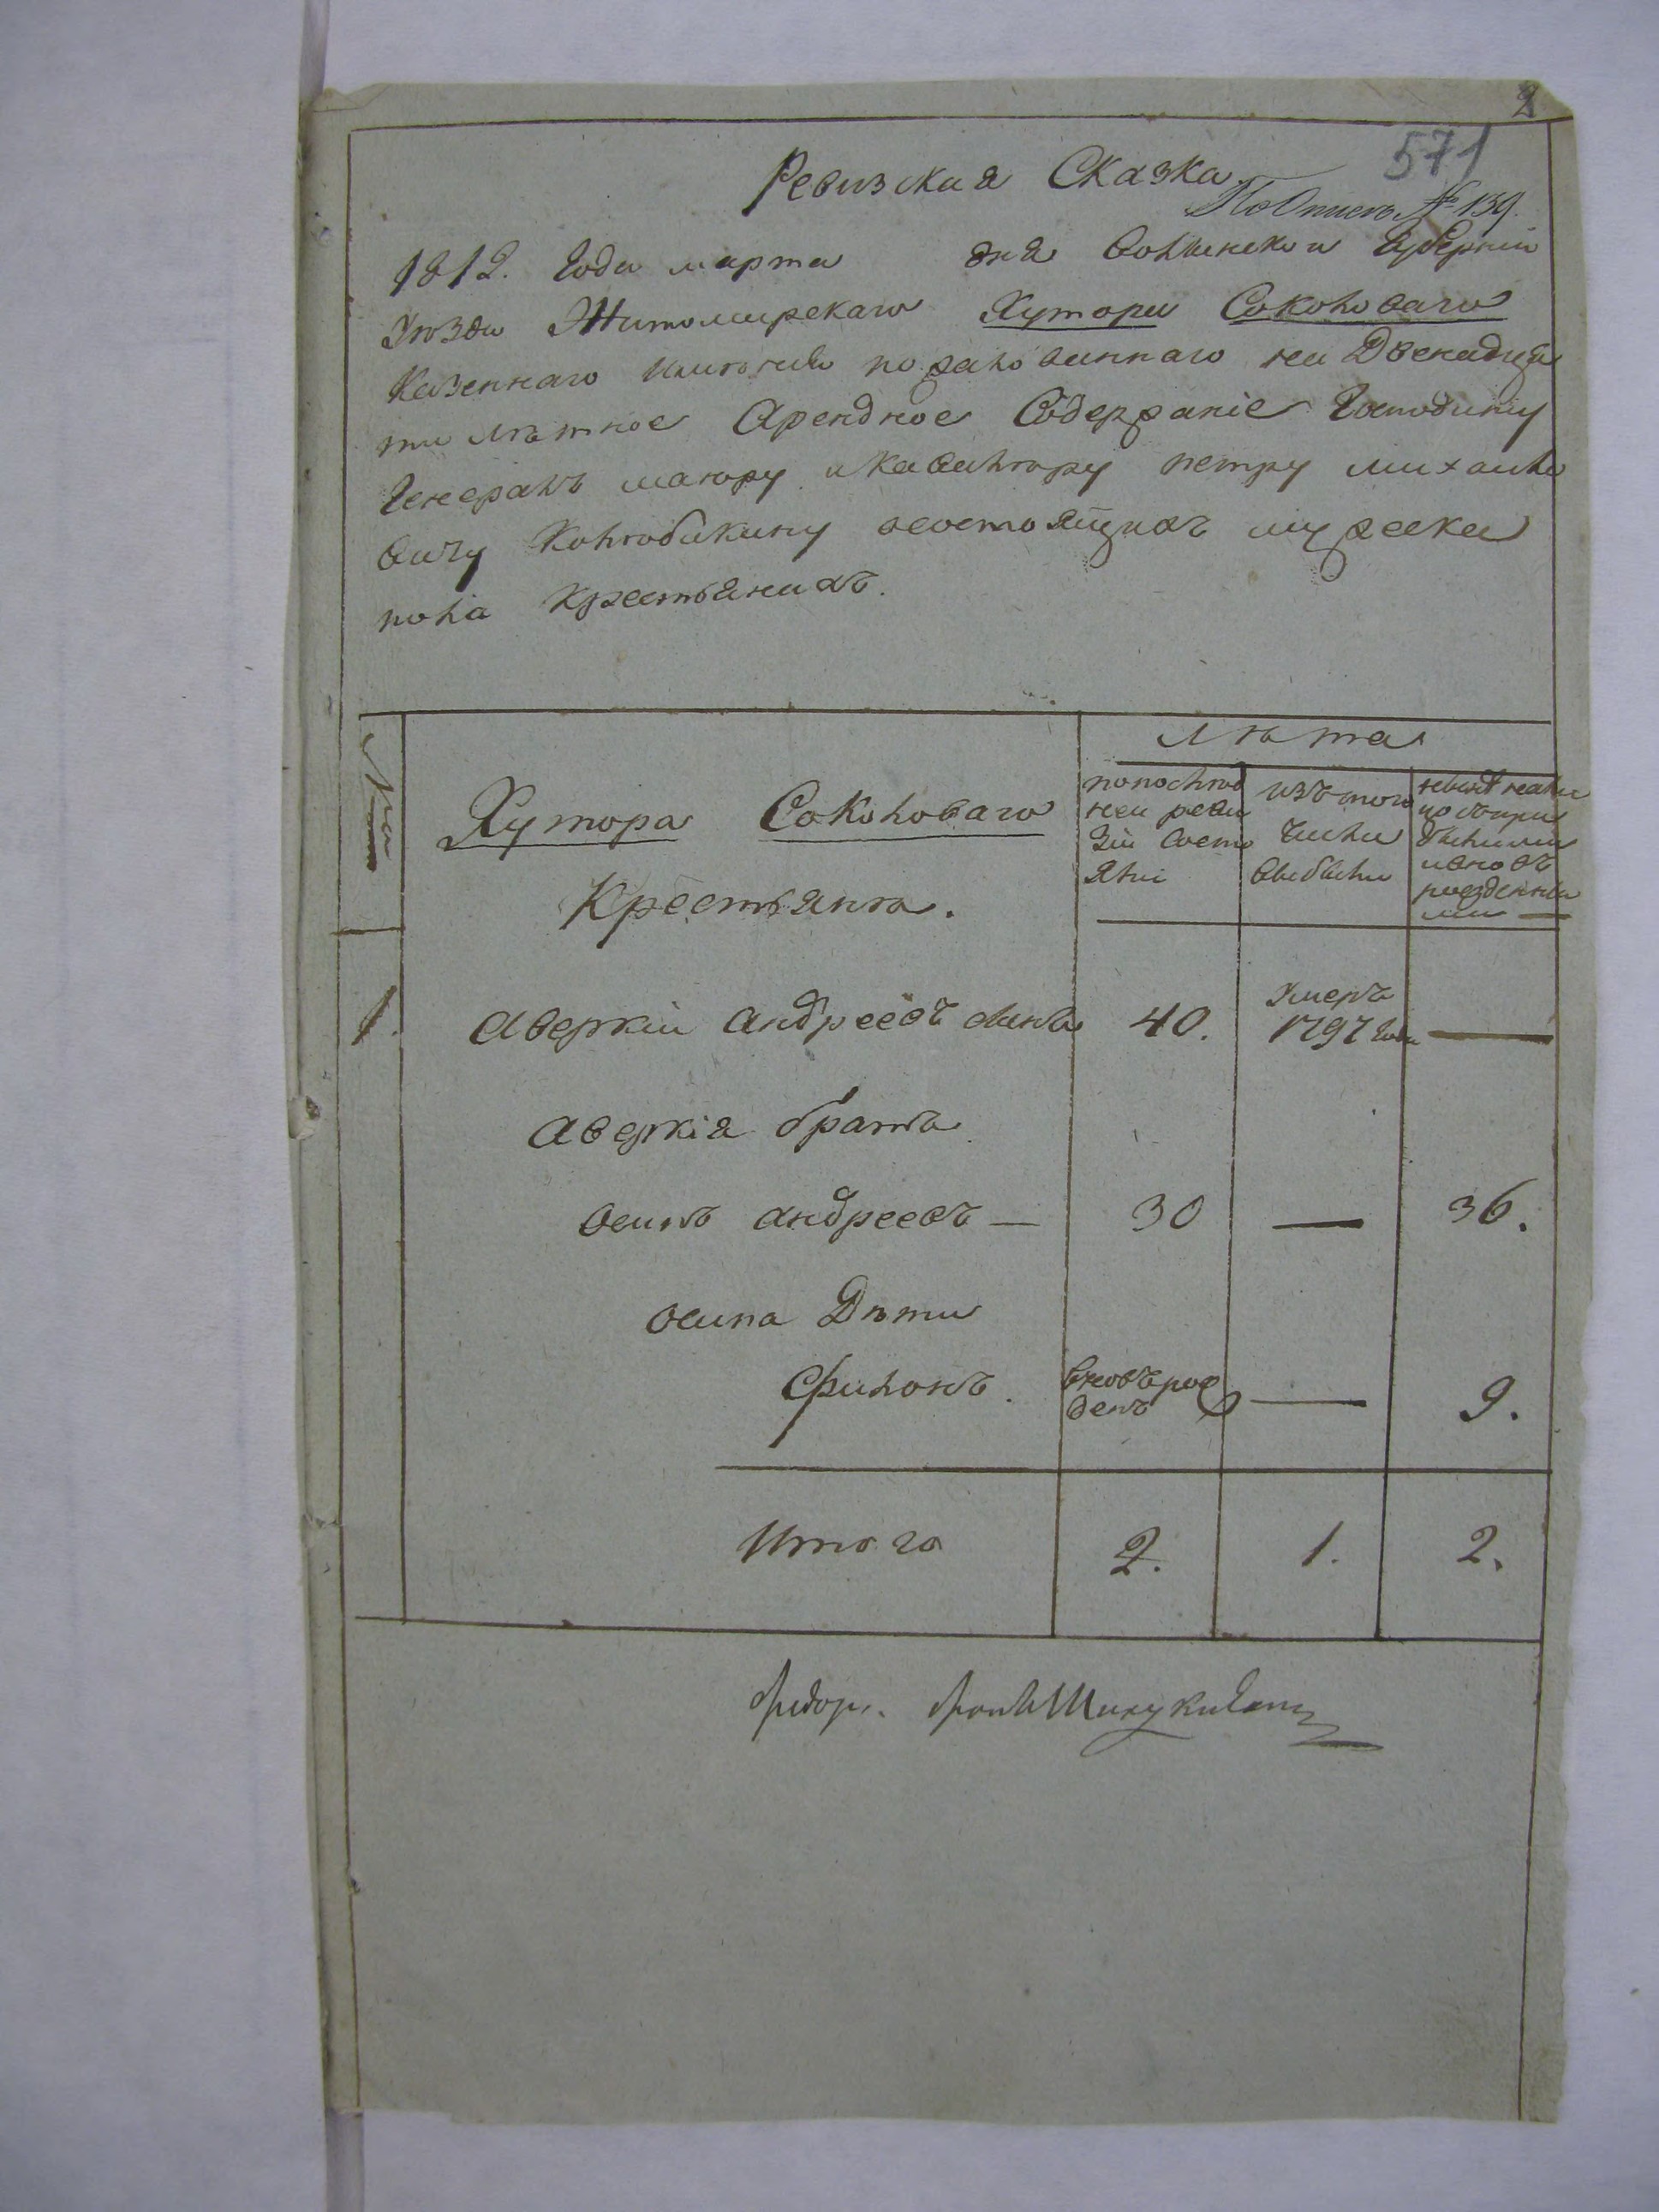 2
571
Ревизская Сказка
По Описи № 139.
1812. Года марта дня Волынской Губернии
Уезда Житомирскаго Хутора Соколоваго
Казеннаго имения пожалованнаго на Двенадца
ти летное Арендное Содержание Господину
Генералъ маиору и кавалеру петру михаило
вичу Колюбакину осостоящихъ мужеска
пола крестьянахъ.
№
Хутора Соколоваго
Крестьяне.
лета
попослед
ней реви
зии Состо
яли
изътого
числа
выбыли
ныне налицо
рожденны
ми
1.
Аверкий Андреевъ
40.
умеръ
1797 Года
—
Аверкия братъ
осипъ андреевъ —
30
—
36.
осипа Дети
Филонъ.
вновърож
денъ
—
9.
Итого
2.
1.
2.